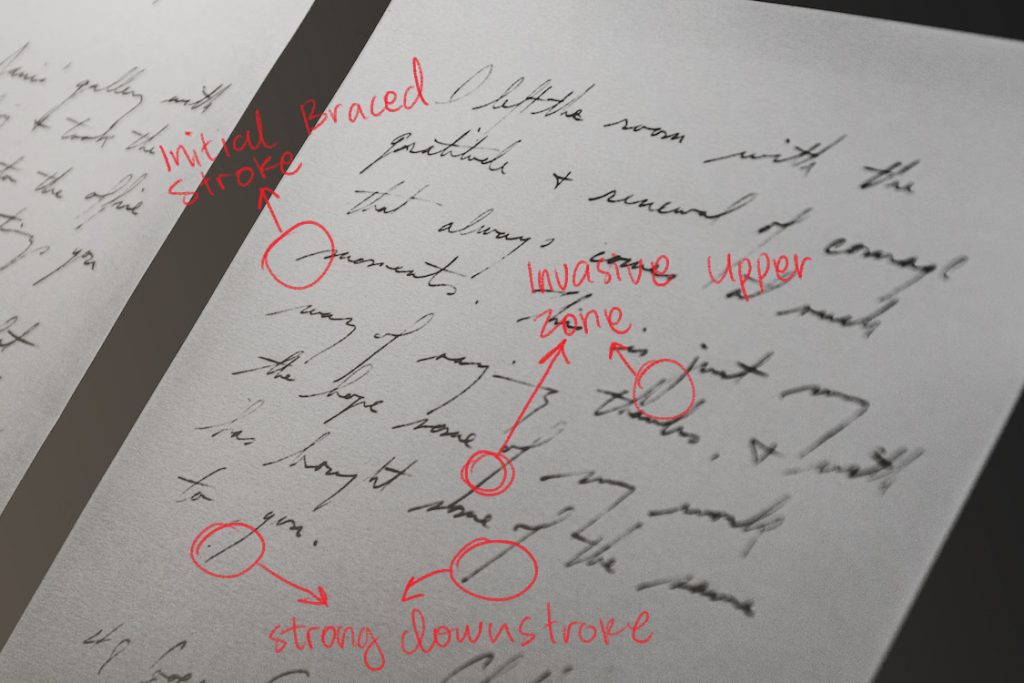 gallery with
& took the
to the office
you
I left the room with the
gratitude & renewal of courage
that always comes at such
moments. This is just my
way of saying thanks, & with
the hope some of my work
has brought some of the same
to you.
Initial Braced
Stroke
Invasive Upper
Zone
strong downstroke